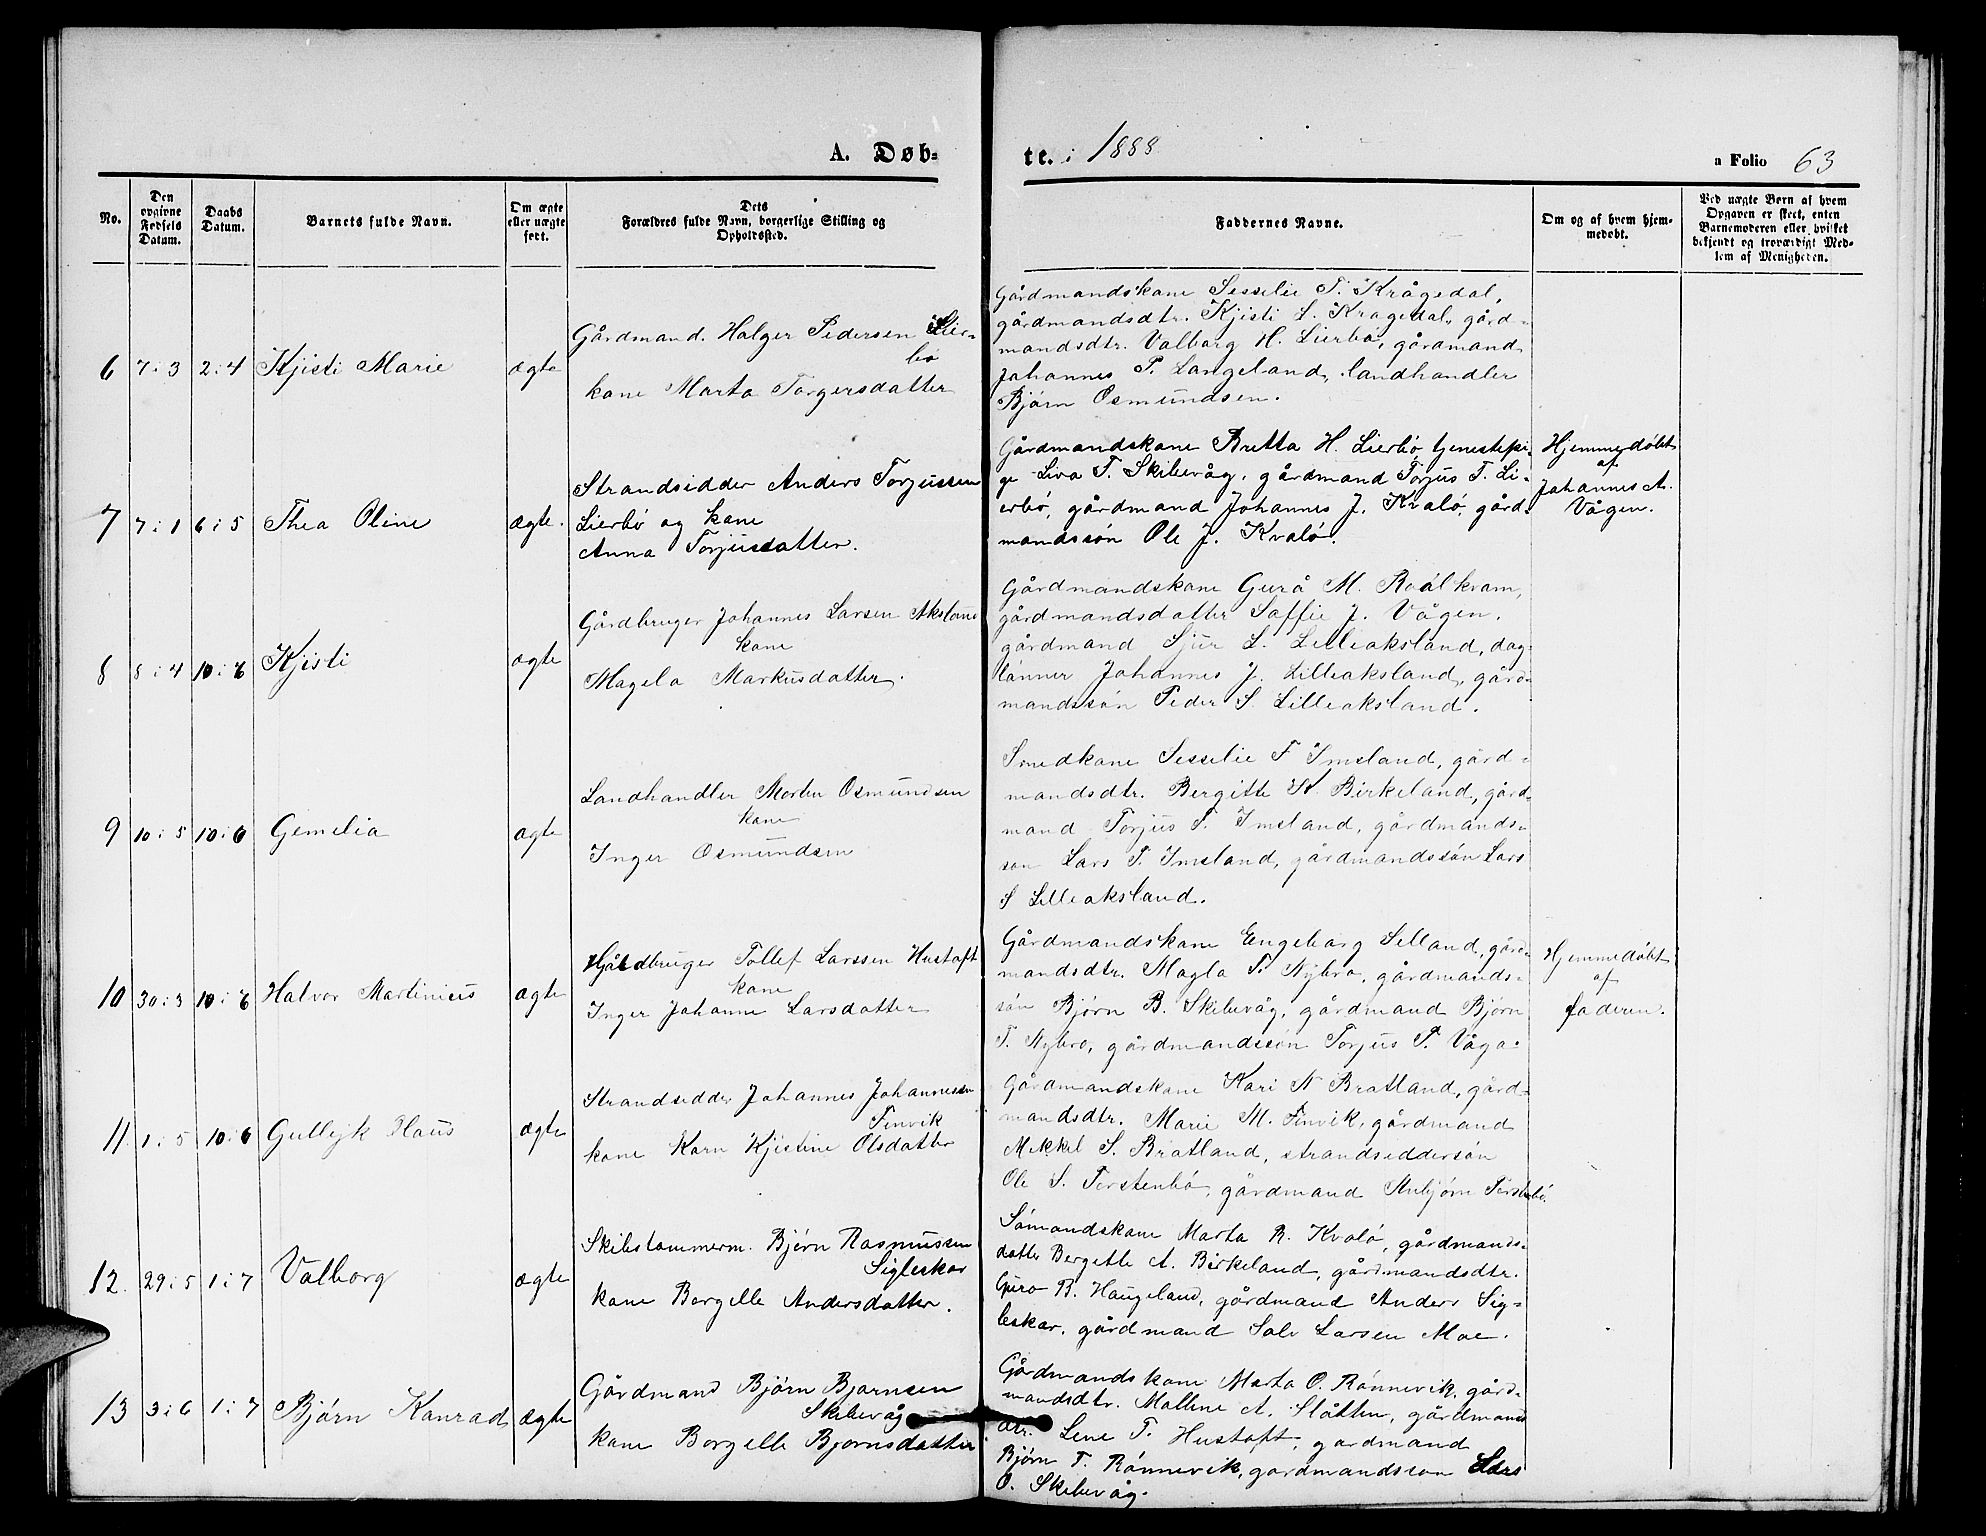 A. Døb-
te. i 1888
a Folio 63
No.
Den opgivne Fødsels Datum.
Daabs Datum.
Barnets fulde Navn.
Om ægte eller uægte født.
Dets Forældres fulde Navn, borgerlige Stilling og Opholdssted.
Faddernes Navne.
Om og af hvem hjemmedøbt.
Ved uægte Børn af hvem Opgaven er skeet, enten Barnemoderen eller hvilket bekjendt og troværdigt Medlem af Menigheden.
6 7:3 2:4 Kjisti Marie ægte
Gårdmand. Halger Pedersen Lier-
bø
kane Marta Torgersdatter
Gårdmandskane Sesselie T. Krågedal,
gårdmandsdtr. Kjisti L. Kragedal, gård-
mandsdtr. Valborg H. Lierbø, gårdmand
Johannes P. Langeland, landhandler
Bjørn Osmundsen.
7 7:1 6:5 Thea Oline ægte.
Strandsidder Anders Torjussen
Lierbø og kane
Anna Torjusdatter.
Gårdmandskane Britta H. Lierbø, tjenestepi-
ge Liva T. Skibevåg, gårdmand Torjus T. Li-
erbø, gårdmand Johannes J. Kvalø, gård-
mandssøn Ole J. Kvalø.
Hjemmedøbt
af
Johannes A.
Vågen.
8 8:4 10:6 Kjisti ægte
Gårdbruger Johannes Larsen Aksland
kane
Magela Markusdatter.
Gårdmandskane Gurå M. Roalkvam,
gårdmandsdatter Saffie J. Vågen,
gårdmand Sjur L. Lilleaksland, dag-
lønner Johannes J. Lilleaksland, gård-
mandssøn Peder S. Lilleaksland.
9 10:5 10:6 Gemelia ægte
Landhandler Morten Osmundsen
kane
Inger Osmundsen
Smedkane Sesselie T Imsland, gård-
mandsdtr. Bergitte K. Birkeland, gård-
mand Torjus T. Imsland, gårdmands-
søn Lars T. Imsland, gårdmandssøn Lars
S Lilleaksland.
10 30:3 10:6 Halvor Martinius ægte
Gårdbruger Tollef Larssen Hustoft
kane
Inger Johanne Larsdatter
Gårdmandskane Engeborg Selland, gård-
mandsdtr. Magla T. Nybro, gårdmands-
søn Bjørn B. Skibevåg, gårdmand Bjørn
T. Nybro, gårdmandssøn Torjus P. Våga.
Hjemmedøbt
af
faderen.
11 1:5 10:6 Gullejk Claus ægte
Strandsedder Johannes Johannessen
Tinvik
kane Karn Kjistine Olsdatter
Gårdmandskane Kari N Bratland, gård-
mandsdtr. Marie M. Tinvik, gårdmand
Mikkel S. Bratland, strandseddersøn
Ole S. Torstenbø, gårdmand Anbjørn
12. 29:5 1:7 Valborg ægte
Skibstømmerm. Bjørn Rasmussen
Sigleskar
kane Borgelle Andersdatter.
Sømandskane Marta R. Kvalø, gårdmands-
datter Bergette A. Birkeland, gårdmandsdtr.
Guro B. Haugeland, gårdmand Anders Sig-
leskar, gårdmand Salv Larsen Moe.
13 3:6 1:7 Bjørn Kanrad ægte
Gårdmand Bjørn Bjørnsen
Skibevåg
kane Borgelle Bjornsdatter.
Gårdmandskane Marta O. Rønnevik, gård-
mandsdtr. Mallene A. Slåtten, gårdmands
dtr. Lene T. Hustoft, gardmand
Bjørn T. Rønnevik, gardmandsson Lars
O. Skibevåg.